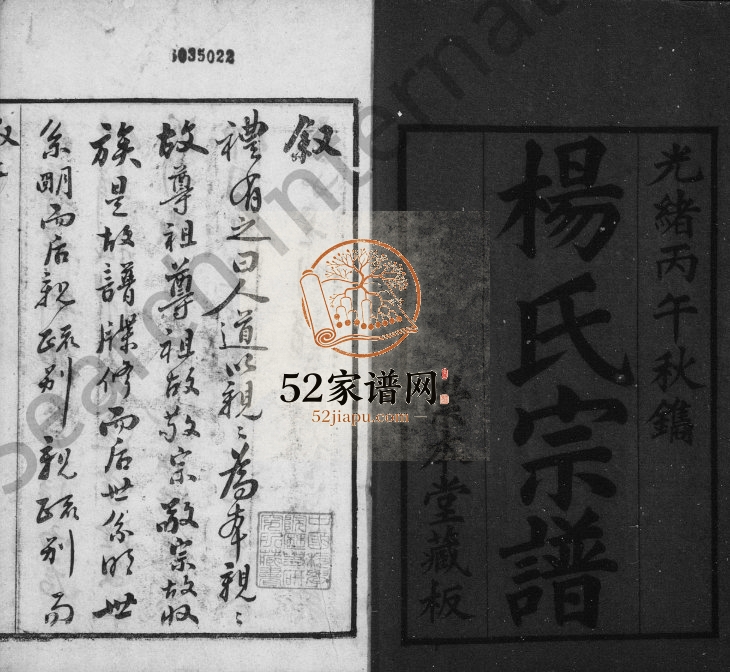 光緒丙午秋鐫
楊氏宗譜
崇本堂藏板
6035022
叙
禮有之曰人道以親〻為本親〻
故尊祖尊祖故敬宗敬宗故收
族是故譜牒修而后世系明世
系明而后親疏别親疏别而
52家谱网
52jiapu.com